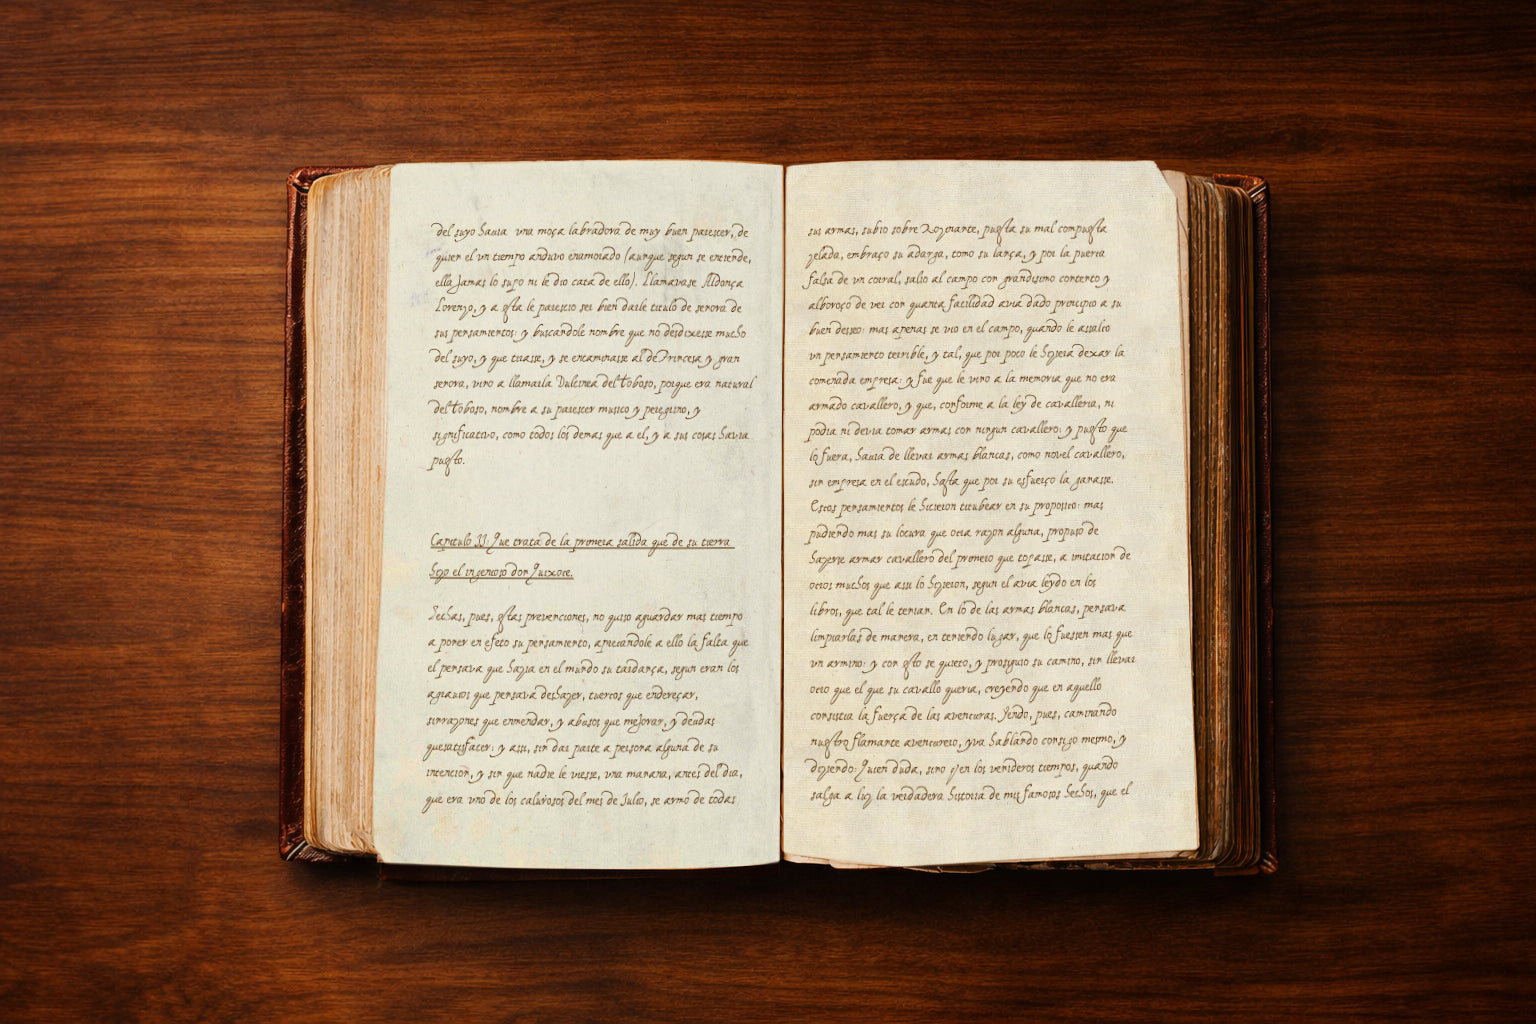 del suyo havia una moça labradora de muy buen parescer, de
quien el un tiempo anduvo enamorado (aunque segun se entiende,
ella jamas lo supo ni le dio cata de ello). Llamavase Aldonça
Lorenzo, y a esta le parescio ser bien darle titulo de senora de
sus pensamientos: y buscandole nombre que no desdixesse mucho
del suyo, y que tirasse, y se encaminasse al de Princesa y gran
senora, vino a llamarla Dulcinea del Toboso, porque era natural
del Toboso, nombre a su parescer musico y peregrino, y
significativo, como todos los demas que a el, y a sus cosas havia
puesto.
Capitulo II: Que trata de la primera salida que de su tierra
hizo el ingenioso don Quixote.
Hechas, pues, estas prevenciones, no quiso aguardar mas tiempo
a poner en efeto su pensamiento, apretandole a ello la falta que
el pensava que hazia en el mundo su tardança, segun eran los
agravios que pensava deshazer, tuertos que endereçar,
sinrazones que enmendar, y abusos que mejorar, y deudas
quesatisfacer: y assi, sin dar parte a persona alguna de su
intencion, y sin que nadie le viesse, una manana, antes del dia,
que era uno de los calurosos del mes de Julio, se armo de todas
sus armas, subio sobre Rozinante, puesta su mal compuesta
zelada, embraço su adarga, tomo su lança, y por la puerta
falsa de un corral, salio al campo con grandisimo contento y
alboroço de ver con quanta facilidad avia dado principio a su
buen desseo: mas apenas se vio en el campo, quando le assalto
un pensamiento terrible, y tal, que por poco le hiziera dexar la
comenzada empresa: y fue que le vino a la memoria que no era
armado cavallero, y que, conforme a la ley de cavalleria, ni
podia ni devia tomar armas con ningun cavallero: y puesto que
lo fuera, havia de llevar armas blancas, como novel cavallero,
sin empresa en el escudo, hasta que por su esfuerço la ganasse.
Estos pensamientos le hicieron titubear en su proposito: mas
pudiendo mas su locura que otra razon alguna, propuso de
hazerse armar cavallero del primero que topasse, a imitacion de
otros muchos que assi lo hizieron, segun el avia leydo en los
libros, que tal le tenian. En lo de las armas blancas, pensava
limpiarlas de manera, en teniendo lugar, que lo fuessen mas que
un armino: y con esto se quieto, y prosiguio su camino, sin llevar
otro que el que su cavallo queria, creyendo que en aquello
consistia la fuerça de las aventuras. Yendo, pues, caminando
nuestro flamante aventurero, yva hablando consigo mesmo, y
diziendo: Quien duda, sino q'en los venideros tiempos, quando
salga a luz la verdadera historia de mis famosos hechos, que el